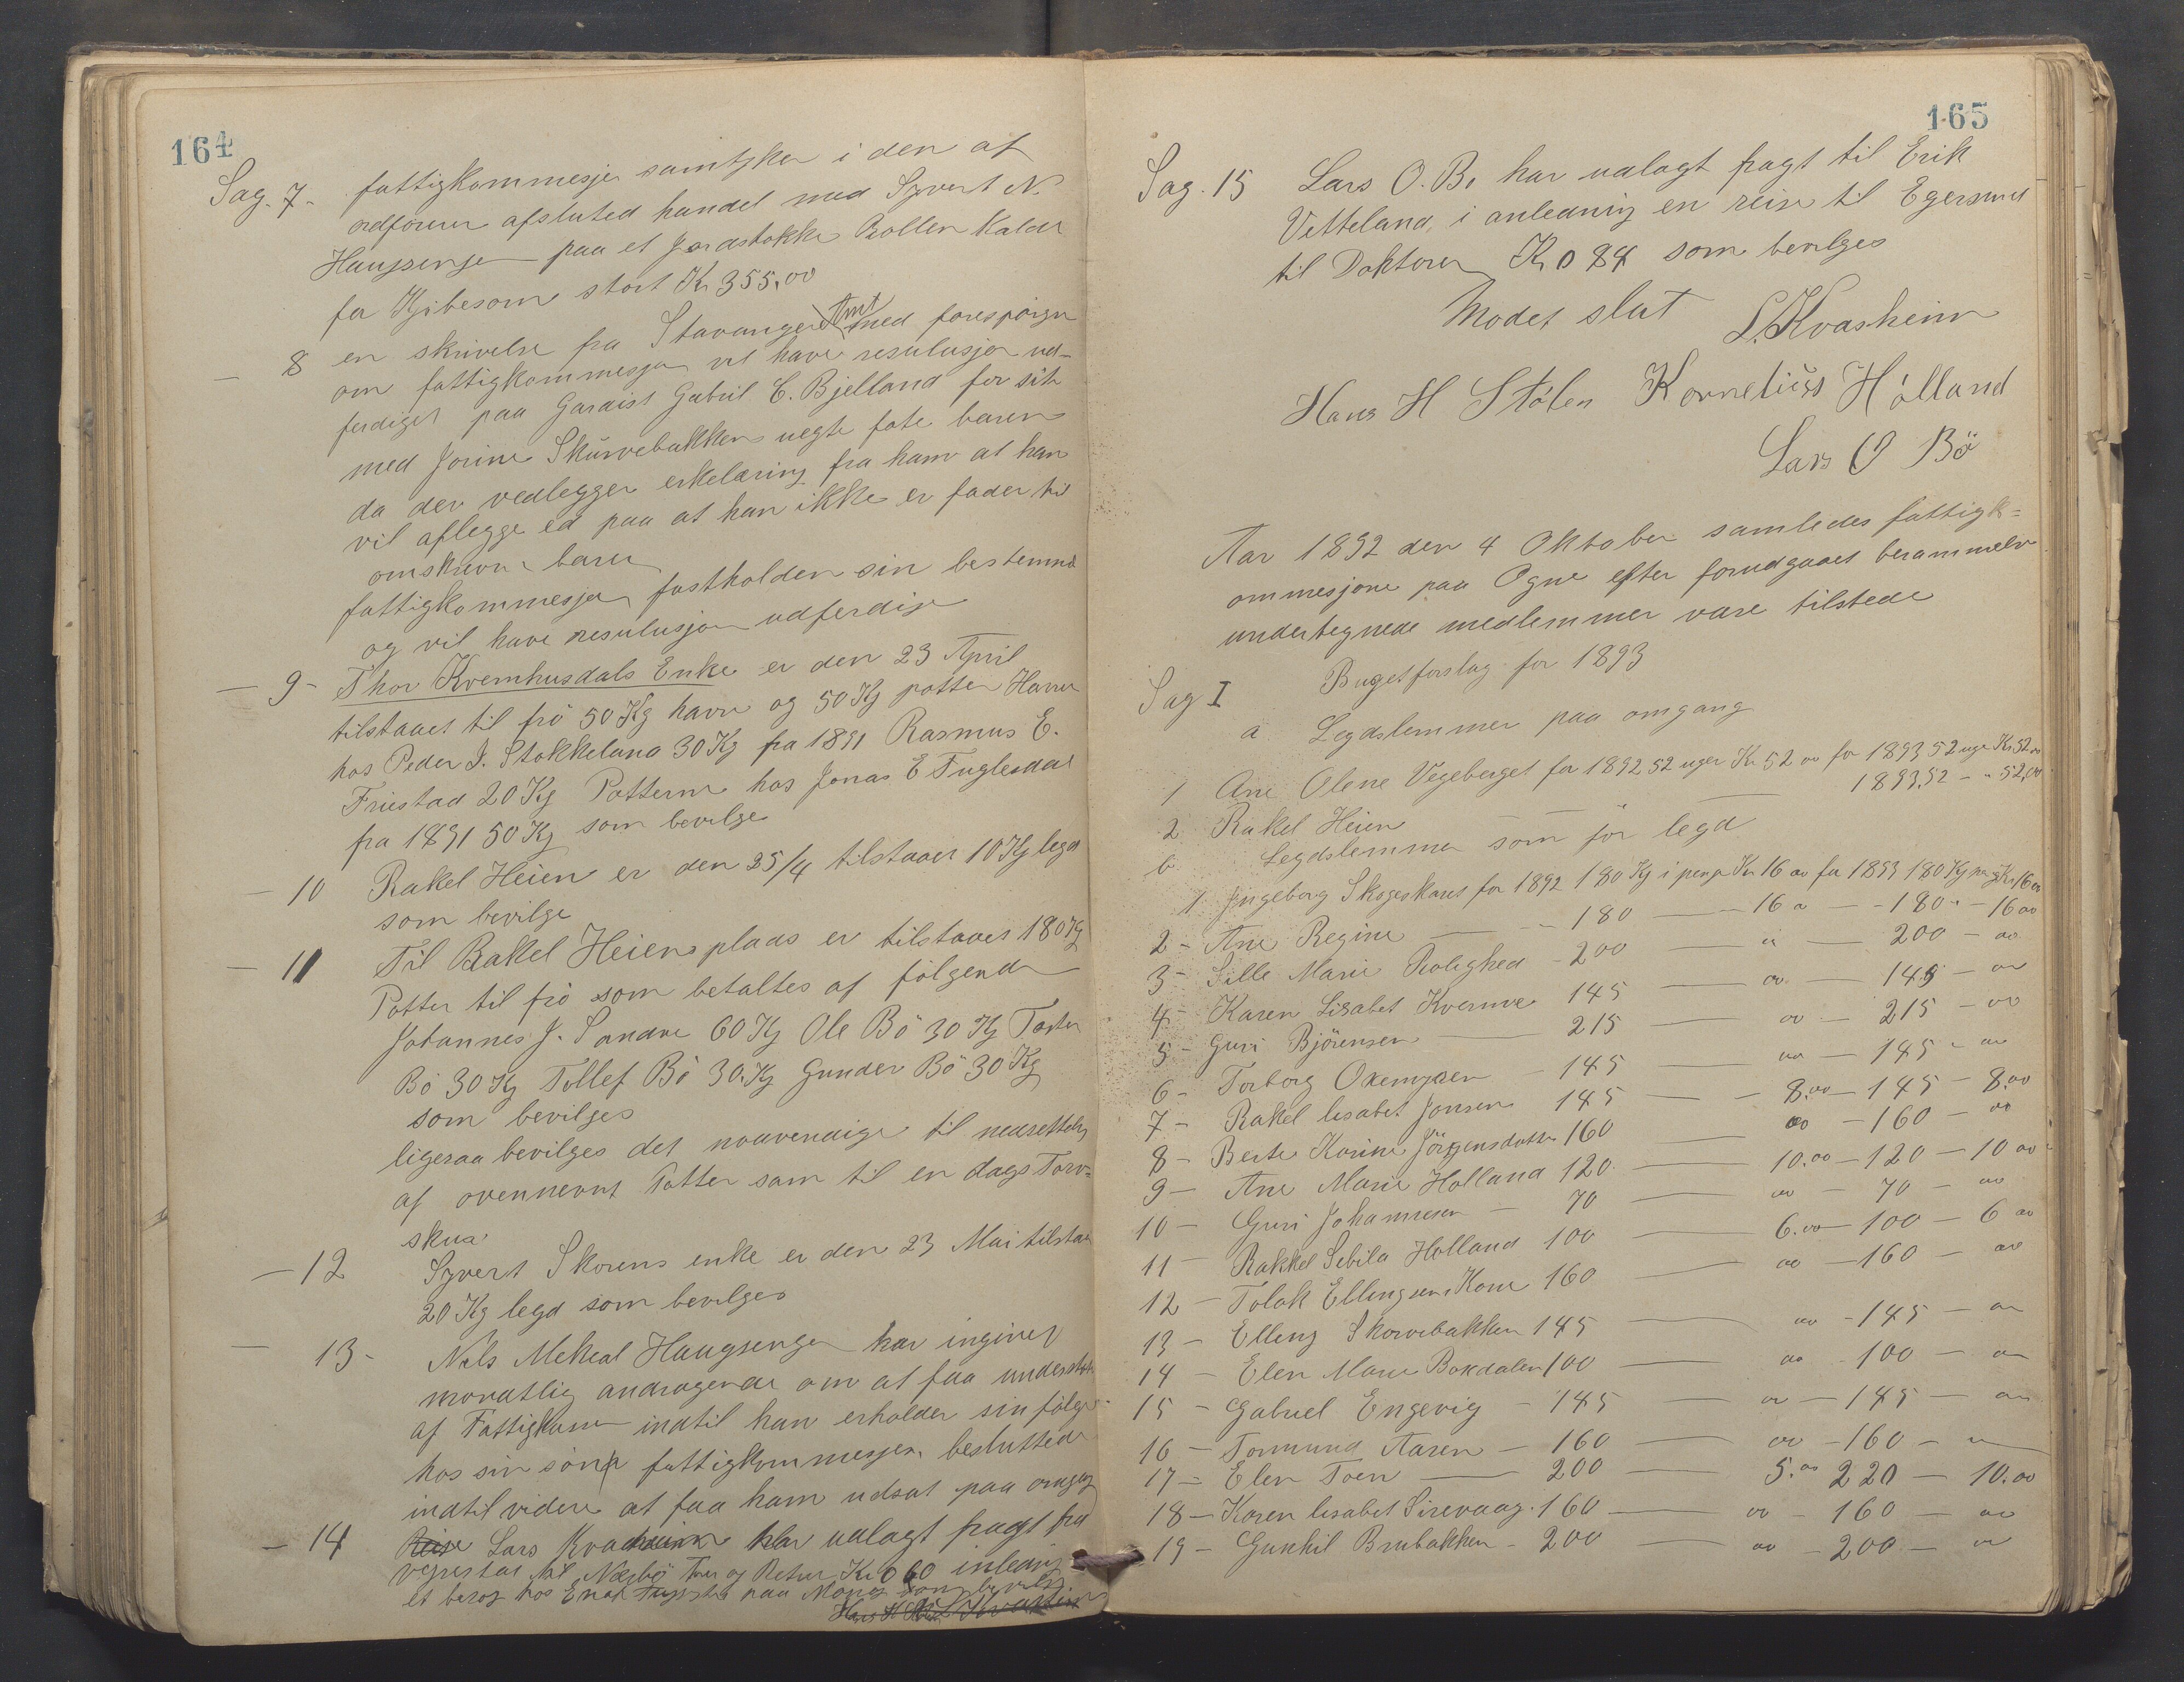 164
Sag. 7- fattigkommesje samtyker i den af
ordförerer afsluted handel med Syvert N.
Haugsenje paa et Jordstökke Rollen Kaldt
for Kjöbesom stort Kr 355.00
- 8 en skrivelse fra Stavanger Amt med forespörgn
om fattigkommesja vil have resulusjon ud-
ferdiget paa Gardist Gabril C. Bjelland for sit
med Jorine Skurvebakken uegte fote baren
da der vedlegger erkelæring fra ham at han
vil aflegge ed paa at han ikke er fader til
omskrevne baren
fattigkommesjen fastholden sin bestemmd
og vil have resulusjon udferdige
- 9- Thor Kvemhusdals Enke er den 23 April
tilstaaet til frö 50 Kg havre og 50 Kg potter Havren
hos Peder J. Stokkeland 30 Kg fra 1891 Rasmus E.
Friestad 20 Kg Potterne hos Jonas E Fuglesdal
fra 1891 50 Kg som bevilge
- 10 Rakel Heien er den 25/4 tilstaaet 10 Kg legd
som bevilge
- 11 Til Rakel Heiens plads er tilstaaet 180 Kg
Potter til frö som betaltes af fölgende
Johannes J. Sandve 60 Kg Ole Bö 30 Kg Torter
Bö 30 Kg Tollef Bö 30. Kg Gunder Bö 30 Kg
som bevilges
ligesaa bevilges det nödvendige til nedsetteln
af ovennevnt Potter sam til en dags Torv-
skua
- 12 Syvert Skorens enke er den 23 Mai tilstaa
20 Kg legd som bevilges
- 13- Nils Mekeal Haugsenge har inginet
mondtlig andragende om at faa understöt
af Fattigkasen indtil han erholder sin fölge
hos sin sön fattigkommesjen besluttede
indtil videre at faa ham udsat paa omgang
- 14 Reise Lars Kvasheim har udlagt fragt fra
Vigrestad til Nærbö Tur og Retur Kr 0 60 inledig
et besög hos Enok Tuysta paa Mong som bevilge
Hans H Stölen L Kvasheim
165
Sag. 15 Lars O. Bö har udlagt fragt til Erik
Vetteland, i anledning en reise til Egersund
til Doktoren Kr 0 84 som bevilges
Modet slut L. Kvasheim
Hans H Stölen Kornelius Hölland
Lars O Bö
Aar 1892 den 4 Oktober samledes fattigk=
ommesjone paa Ogne efter forudgaaet berammelse
undertegnede medlemmer vare tilstede
Sag I Bugetforslag for 1893
a Legdslemmer paa omgang
1 Ane Olene Vegeberget for 1892 52 uger Kr 52 00 for 1893 52 uger Kr 52 00
2 Rakel Heien — — — 1893. 52 - " 52,00
b Legdslemmer som för legd
1 Ingeborg Skogeskaret for 1892 180 Kg i penge Kr 16 00 for 1893 180 Kg peng Kr 16 00
2 - Ane Regine — - 180 — - 16 00 - - 180 " - 16 00
3 - Sille Marie Rolighed - 200 — " — 200 - 00
4 - Karen Lisabet Kverme 145 — 00 — 145 - 00
5 - Guri Björensen — 215 — 00 — 215 - 00
6 - Torborg Oxemyren - 145 — 00 — 145 - 00
7 - Rakel lisabet Jonsen 145 — - 8.00 - 145 - 8.00
8 - Berte Korine Jörgensdatter 160 — 00 - 160 - 00
9 - Ane Marie Holland 120. — 10.00 - 120 - 10 00
10 - Guri Johannesen - 70 — 00 - 70 - 00
11 - Rakkel Sebila Holland 100 — 6.00 - 100 - 6 00
12 - Tolak Ellingsens Kone 160 — 00 - 160 - 00
13 - Elleng Skorvebakken 145 — 00 - 145 - 00
14 - Elen Marie Bokdalen 100 — 00 - 100 - 00
15 - Gabriel Engevig - 145 — 00 - 145 - 00
16 - Tormund Aaren - 160 — 00 - 160 - 00
17 - Elen Toen — 200 — 5.00 220 - 10.00
18 - Karen lisabet Sirevaag. 160 — 00 - 160 - 00
19 - Gunhil Brubakken - 200 — 00 - 200 - 00